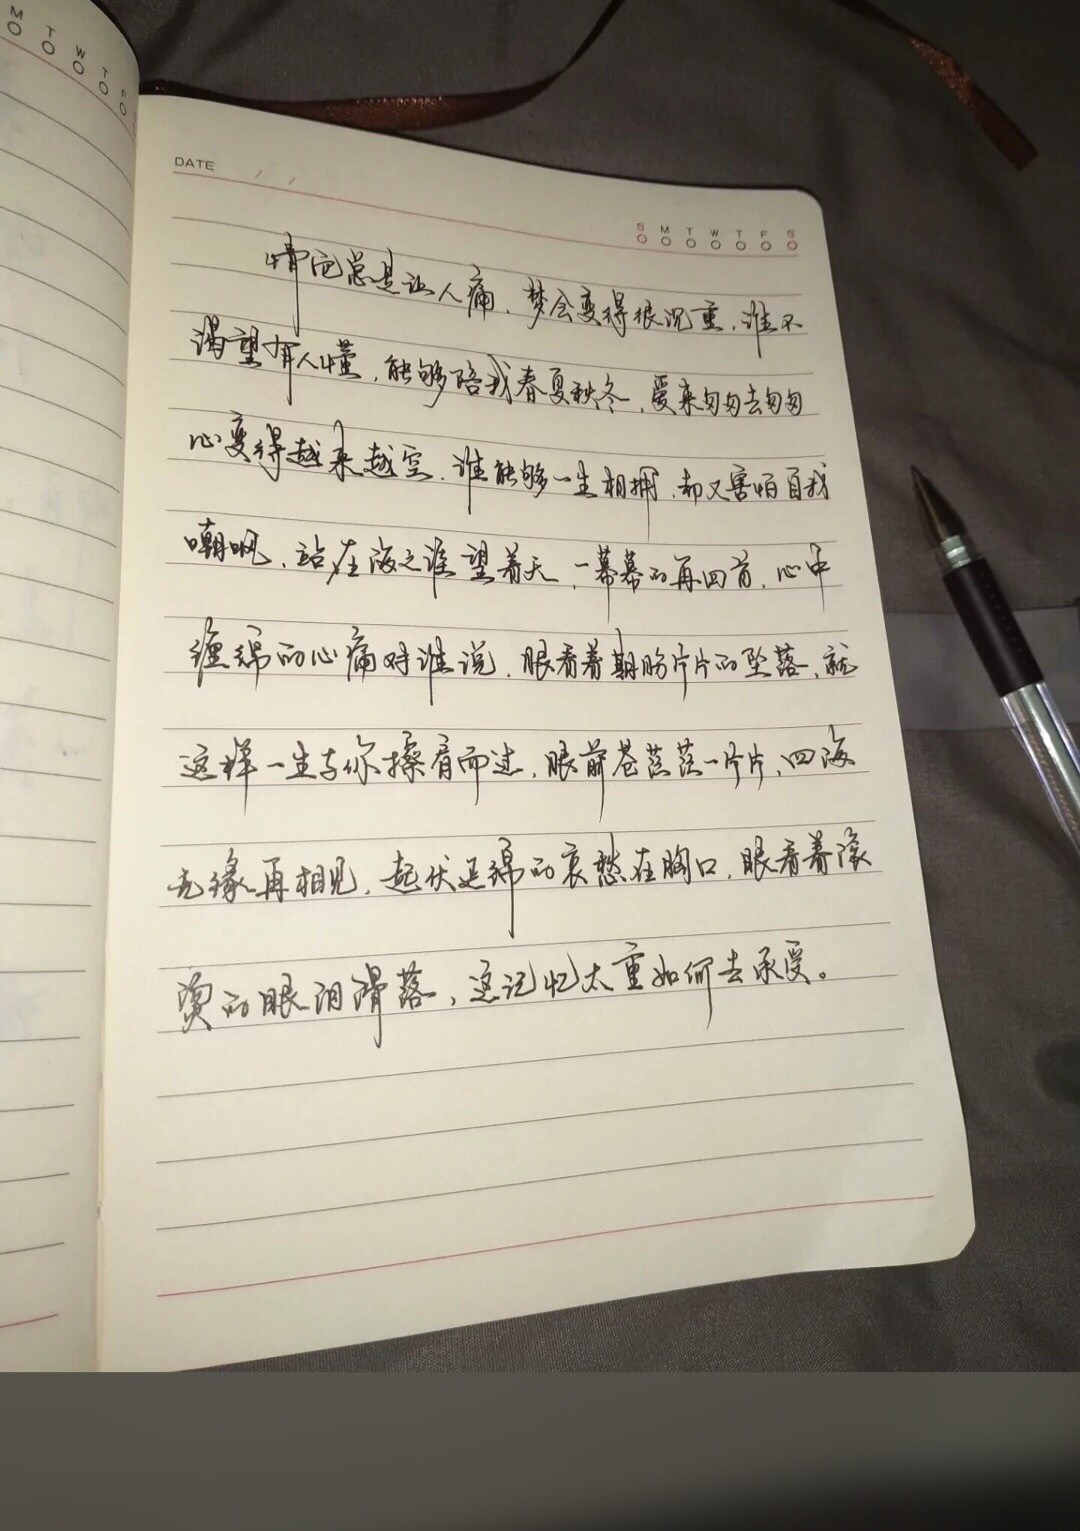 M T W T F
DATE / /
S M T W T F S
情宛总是让人痛，梦会变得很沉重，谁不
渴望有人懂，能够陪我春夏秋冬，爱来匆匆去匆匆
心变得越来越空，谁能够一生相拥，却又害怕自我
嘲，站在海之涯望着天，一幕幕的再回首，心中
缠绵的心痛对谁说，眼看着期盼片片的坠落，就
这样一生与你擦肩而过，眼前苍茫茫一片片，四海
无缘再相见，起伏延绵的哀愁在胸口，眼看着滚
烫的眼泪滑落，这记忆太重如何去承受。